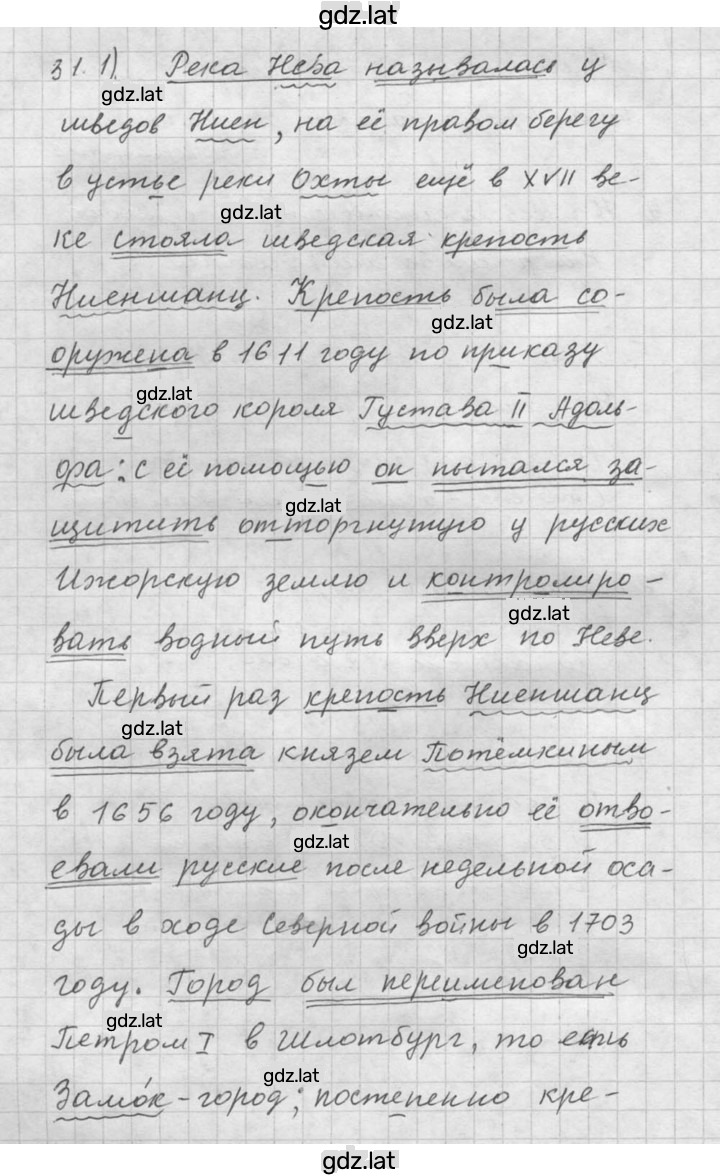 gdz.lat
31. 1). Река Нева называлась у
gdz.lat
шведов Ниен, на её правом берегу
в устье реки Охты ещё в XVII ве-
gdz.lat
ке стояла шведская крепость
Ниеншанц. Крепость была со-
gdz.lat
оружена в 1611 году по приказу
gdz.lat
шведского короля Густава II Адоль-
фа: с её помощью он пытался за-
gdz.lat
щитить отторгнутую у русских
Ижорскую землю и контролиро-
gdz.lat
вать водный путь вверх по Неве.
Первый раз крепость Ниеншанц
gdz.lat
была взята князем Потёмкиным
в 1656 году, окончательно её отво-
gdz.lat
евали русские после недельной оса-
ды в ходе Северной войны в 1703
gdz.lat
году. Город был переименован
gdz.lat
Петром I в Шлотбург, то есть
gdz.lat
Замо́к-город; постепенно кре-
gdz.lat